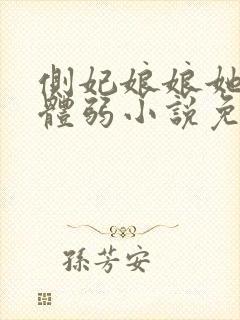 側妃娘娘她
體弱小說免
孫芳安